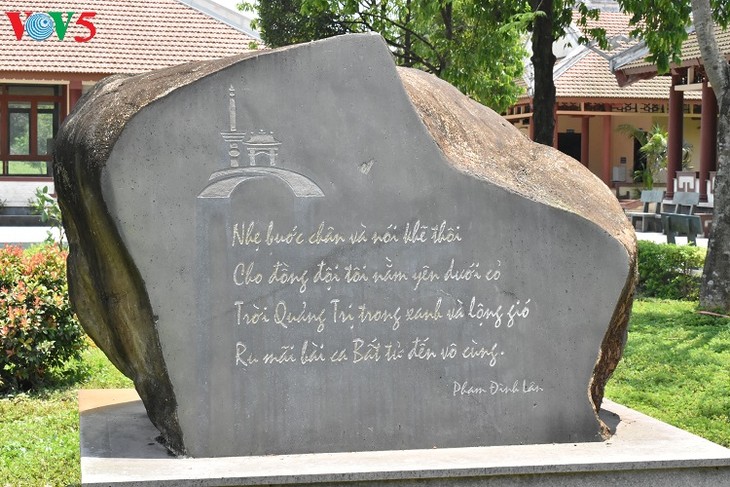 VOV5
Nhẹ bước chân và nói khẽ thôi
Cho đồng đội tôi nằm yên dưới cỏ
Trời Quảng Trị trong xanh và lộng gió
Ru mãi bài ca Bất tử đến vô cùng.
Phạm Đình Lân